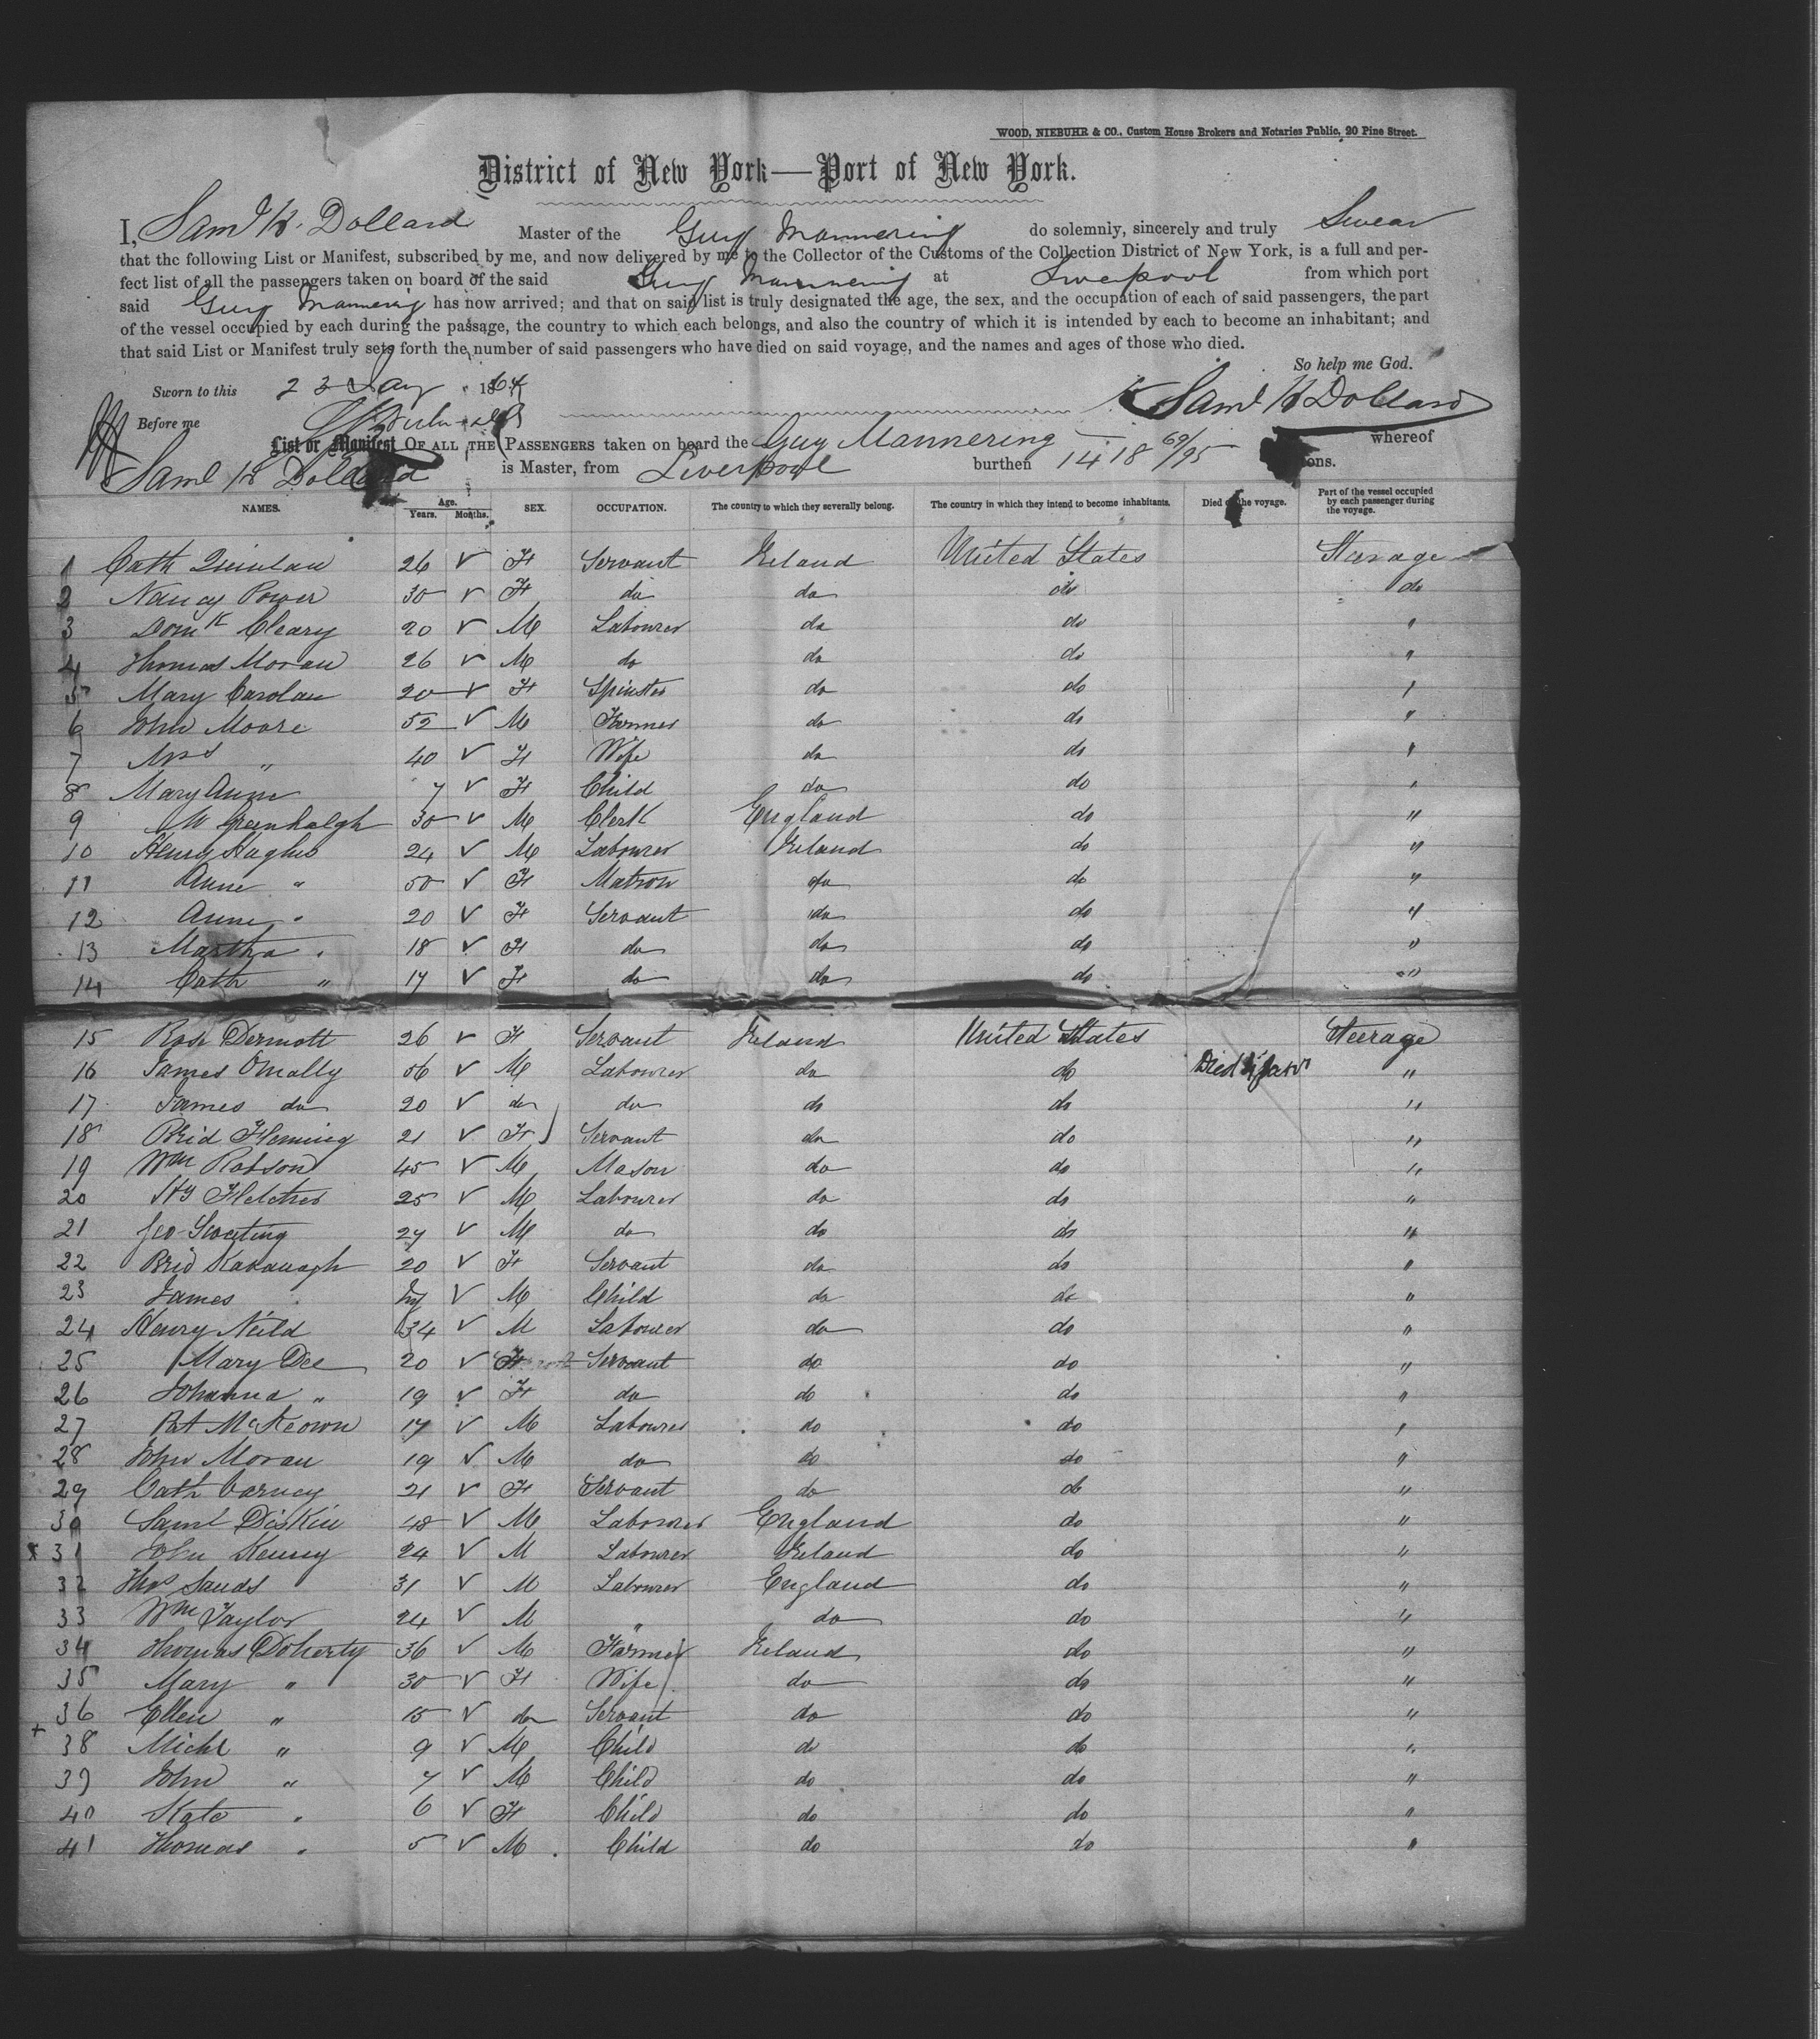 WOOD, NIEBUHR & CO., Custom House Brokers and Notaries Public, 20 Pine Street.
District of New York—Port of New York.
I, Saml H. Dollard Master of the Guy Mannering do solemnly, sincerely and truly Swear
that the following List or Manifest, subscribed by me, and now delivered by me to the Collector of the Customs of the Collection District of New York, is a full and per-
fect list of all the passengers taken on board of the said Guy Mannering at Liverpool from which port
said Guy Mannering has now arrived; and that on said list is truly designated the age, the sex, and the occupation of each of said passengers, the part
of the vessel occupied by each during the passage, the country to which each belongs, and also the country of which it is intended by each to become an inhabitant; and
that said List or Manifest truly sets forth the number of said passengers who have died on said voyage, and the names and ages of those who died.
So help me God.
Sworn to this 23 Jany 1864
Saml H Dollard
Before me
List or Manifest OF ALL THE PASSENGERS taken on board the Guy Mannering whereof
Saml H Dollard is Master, from Liverpool burthen 1418 69/95 tons.
NAMES. Age. Years. Months. SEX. OCCUPATION. The country to which they severally belong. The country in which they intend to become inhabitants. Died on the voyage. Part of the vessel occupied by each passenger during the voyage.
1 Cath Quinlan 26 F Servant Ireland United States Steerage
2 Nancy Power 30 F do do do do
3 Domk Cleary 20 M Labourer do do "
4 Thomas Moran 26 M do do do "
5 Mary Carolan 20 F Spinster do do "
6 John Moore 52 M Farmer do do "
7 Mrs " 40 F Wife do do "
8 Mary Anne 7 F Child do do "
9 W Greenhalgh 30 M Clerk England do "
10 Henry Hughes 24 M Labourer Ireland do "
11 Anne " 50 F Matron do do "
12 Anne " 20 F Servant do do "
13 Martha " 18 F do do do "
14 Cath " 17 F do do do "
15 Rose Dermott 26 F Servant Ireland United States Steerage
16 James Omally 56 M Labourer do do Died "
17 James do 20 do do do do "
18 Brid Fleming 21 F Servant do do "
19 Wm Robson 45 M Mason do do "
20 Hy Fletcher 25 M Labourer do do "
21 Geo Sweeting 27 M do do do "
22 Brid Kavanagh 20 F Servant do do "
23 James M Child do do "
24 Henry Neild 34 M Labourer do do "
25 Mary Dee 20 F Servant do do "
26 Johanna " 19 F do do do "
27 Pat McKeown 17 M Labourer do do "
28 John Moran 19 M do do do "
29 Cath Carney 21 F Servant do do "
30 Saml Diskin 48 M Labourer England do "
x 31 John Kenny 24 M Labourer Ireland do "
32 Thos Sands 31 M Labourer England do "
33 Wm Taylor 24 M " do do "
34 Thomas Doherty 36 M Farmer Ireland do "
35 Mary " 30 F Wife do do "
36 Ellen " 15 do Servant do do "
+ 38 Michl " 9 M Child do do "
39 John " 7 M Child do do "
40 Kate " 6 F Child do do "
41 Thomas " 5 M Child do do "